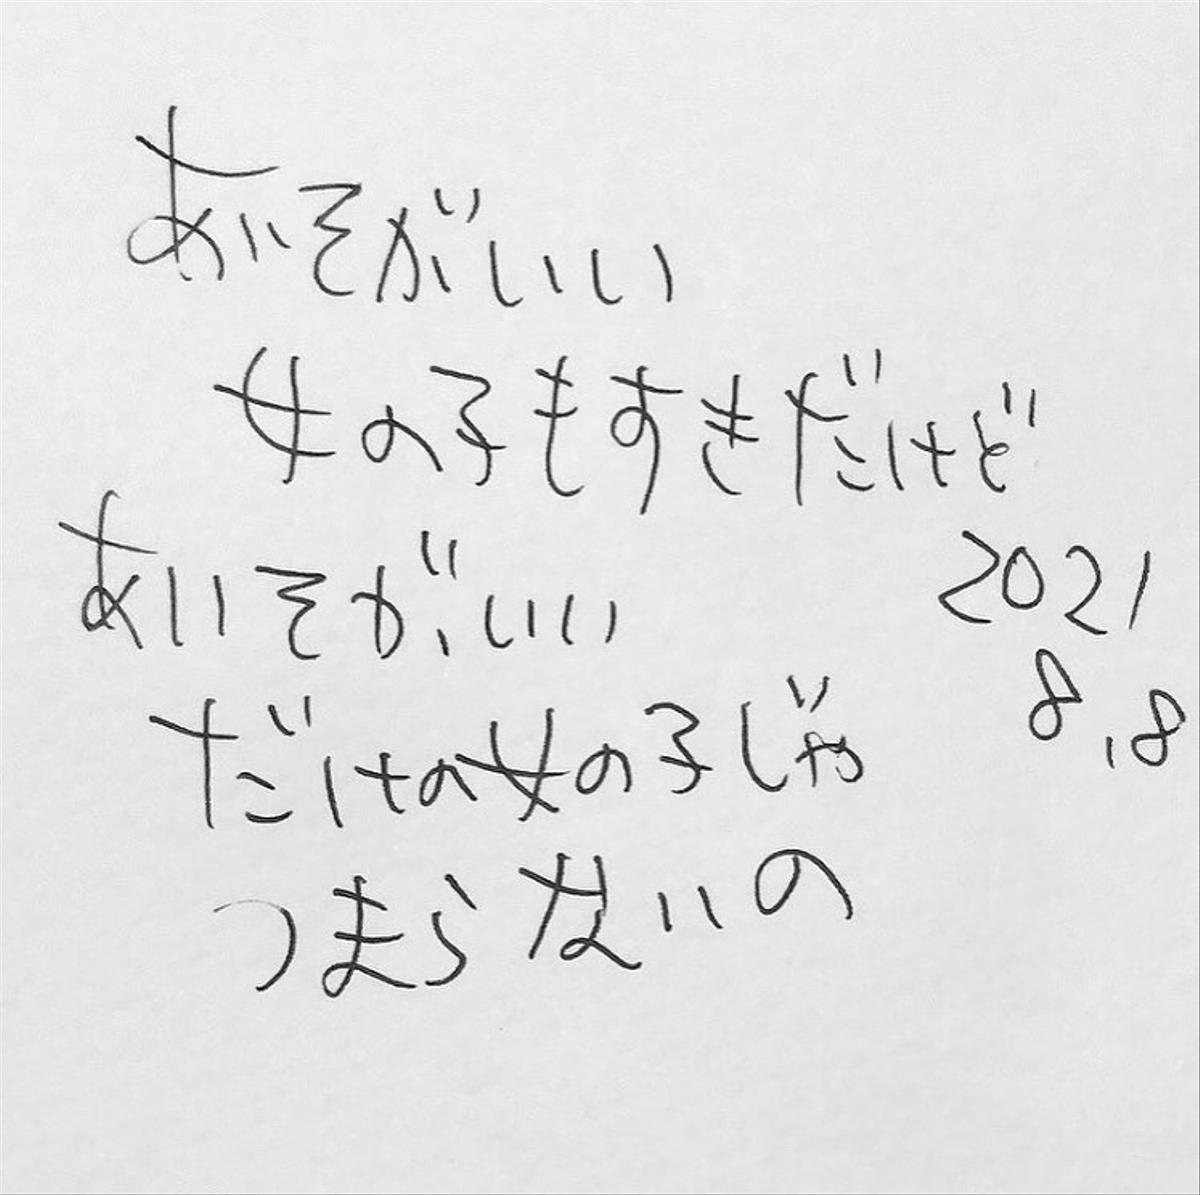 あいそがいい
女の子もすきだけど
あいそがいい
だけの女の子じゃ
つまらないの
2021
8.8